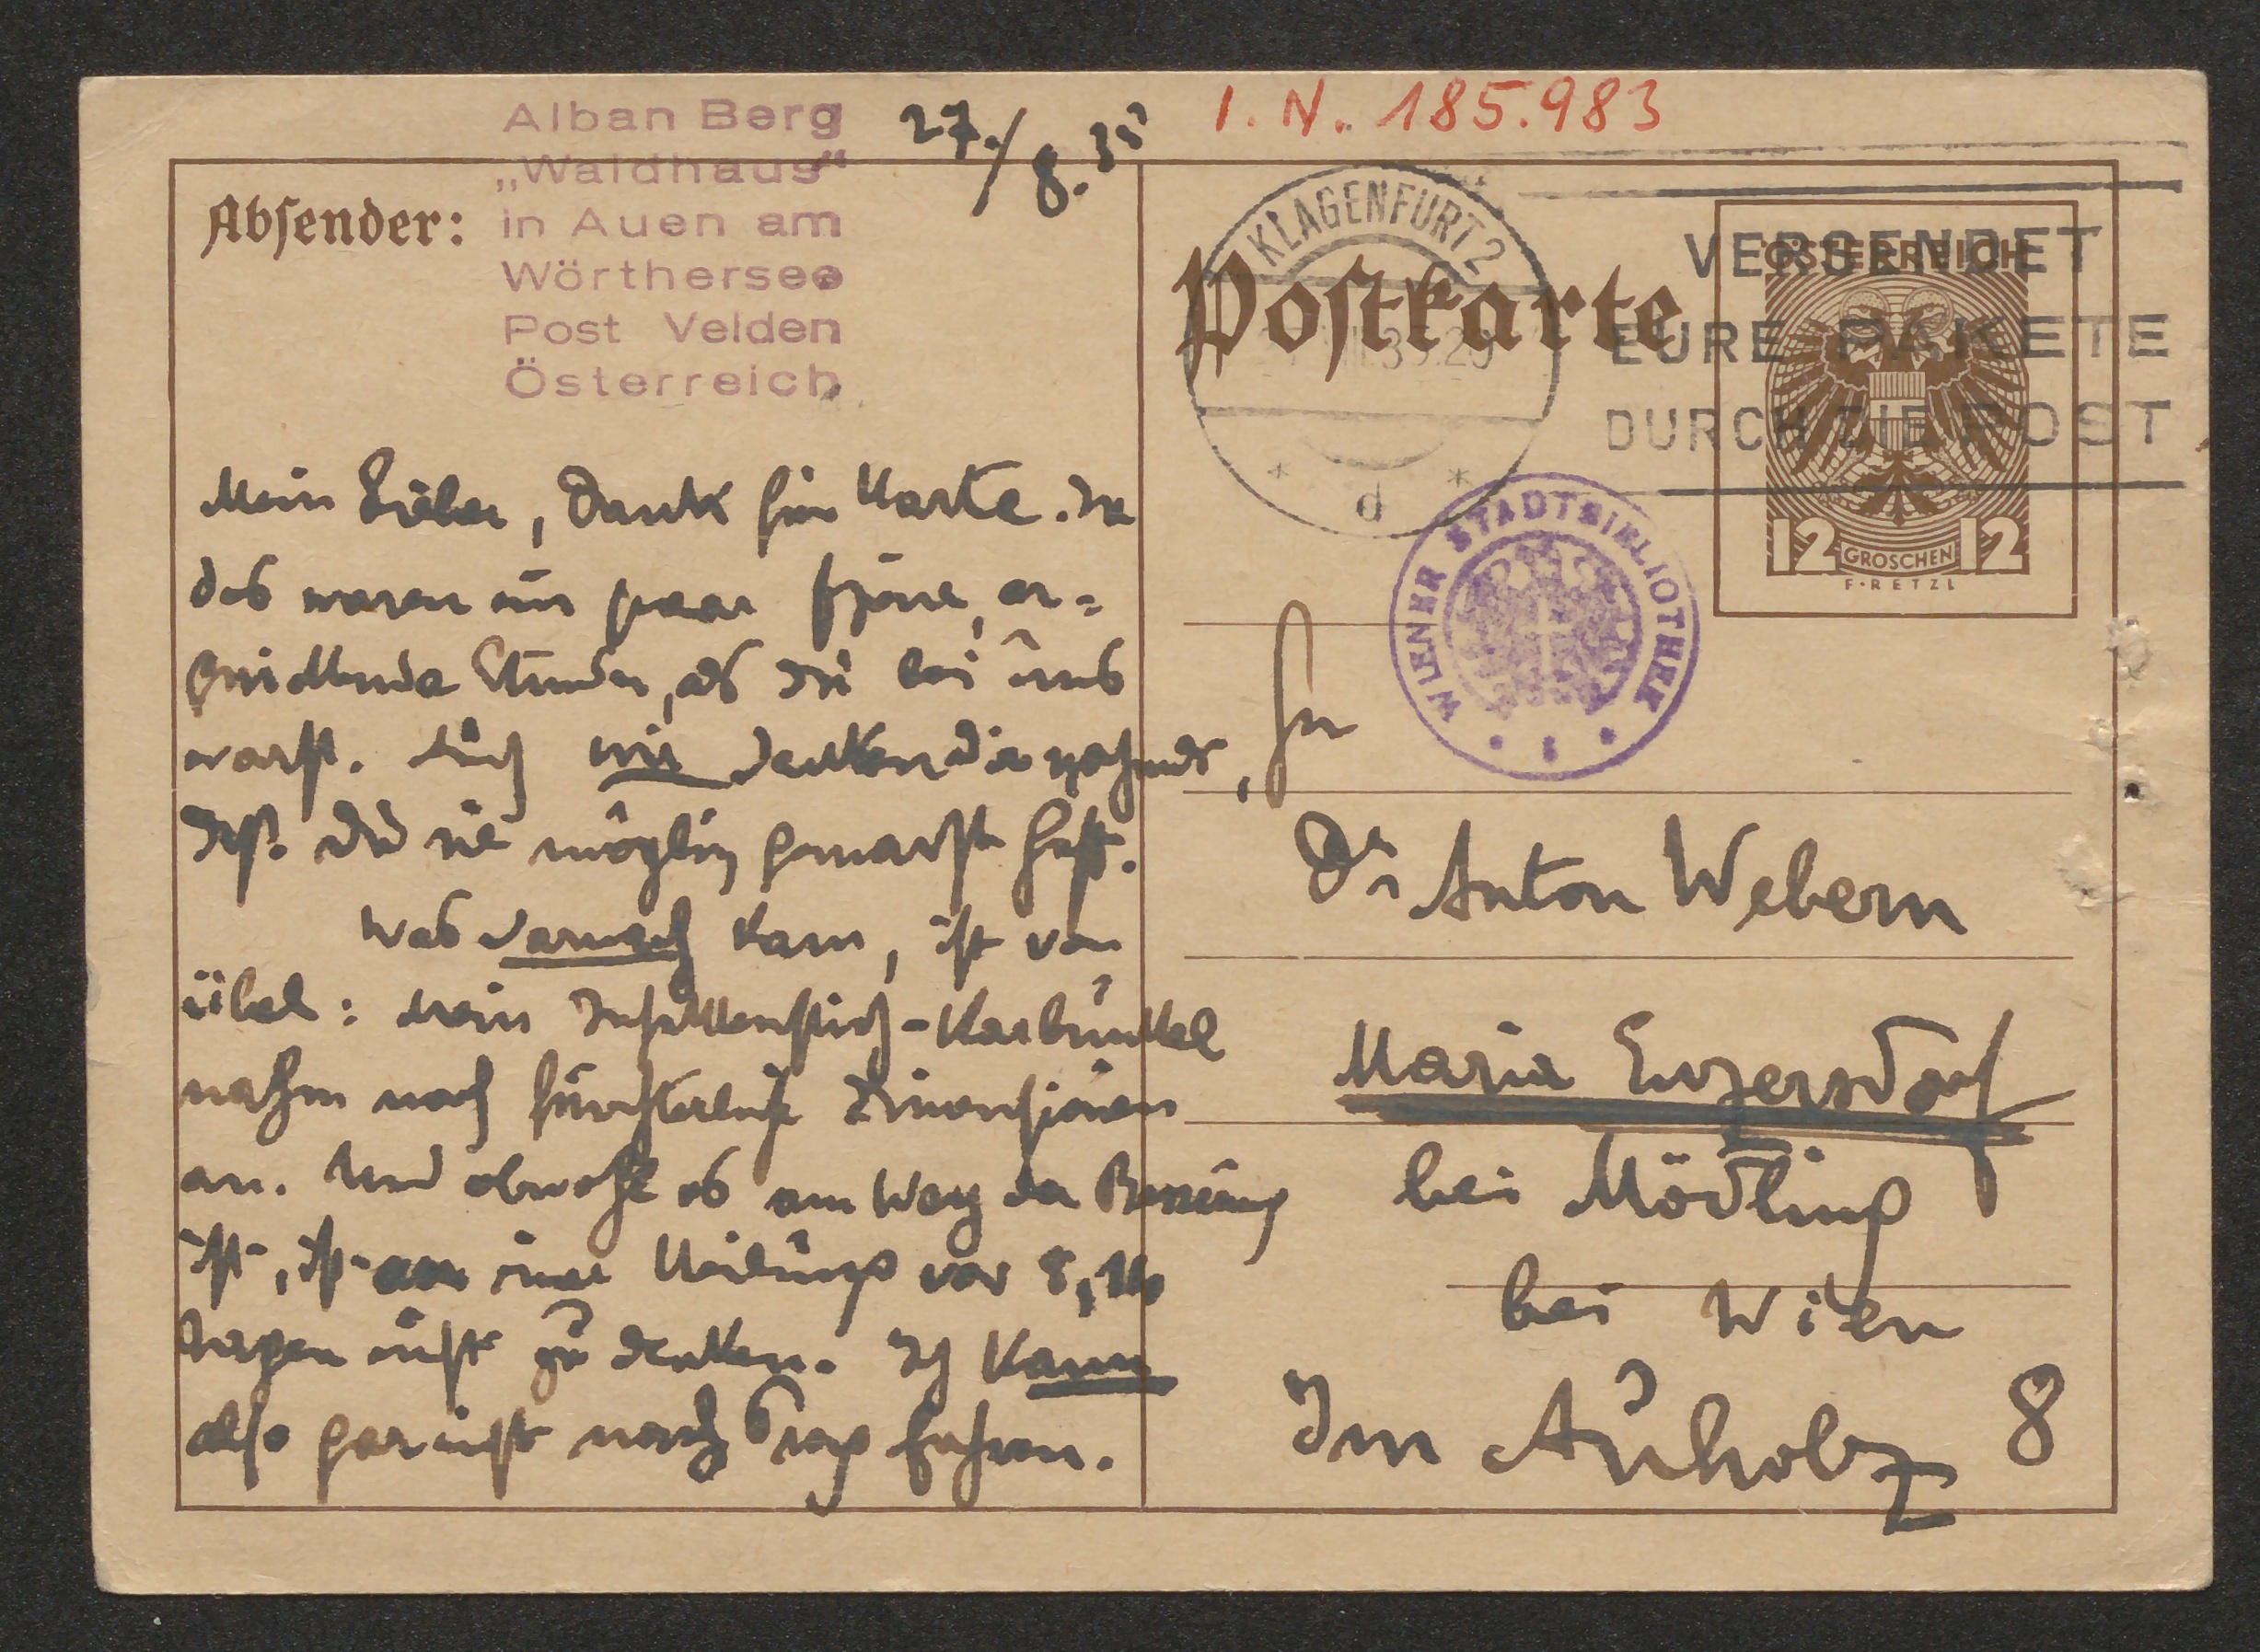 Alban Berg
„Waldhaus“
in Auen am
Wörthersee
Post Velden
Österreich
27./8.35
I. N. 185.983
Absender:
Mein Lieber, Dank für Karte. Ja
das waren ein paar schöne, er=
quickende Stunden, als Du bei uns
warst. Auch wir danken Dir nochmals,
daß Du sie möglich gemacht hast.
Was darnach kam, ist von
übel: mein Insektenstich-Karbunkel
nahm noch fürchterliche Dimensionen
an. Und obwohl es am Weg der Besserung
ist, ist an eine Heilung vor 8, 10
Tagen nicht zu denken. Ich kann
also gar nicht nach Prag fahren.
Postkarte
KLAGENFURT 2
VIII.35.20
* d *
VERSENDET
EURE PAKETE
DURCH DIE POST
ÖSTERREICH
12 GROSCHEN 12
F·RETZL
WIENER STADTBIBLIOTHEK
Hr
Dr Anton Webern
Maria Enzersdorf
bei Mödling
bei Wien
Im Auholz 8